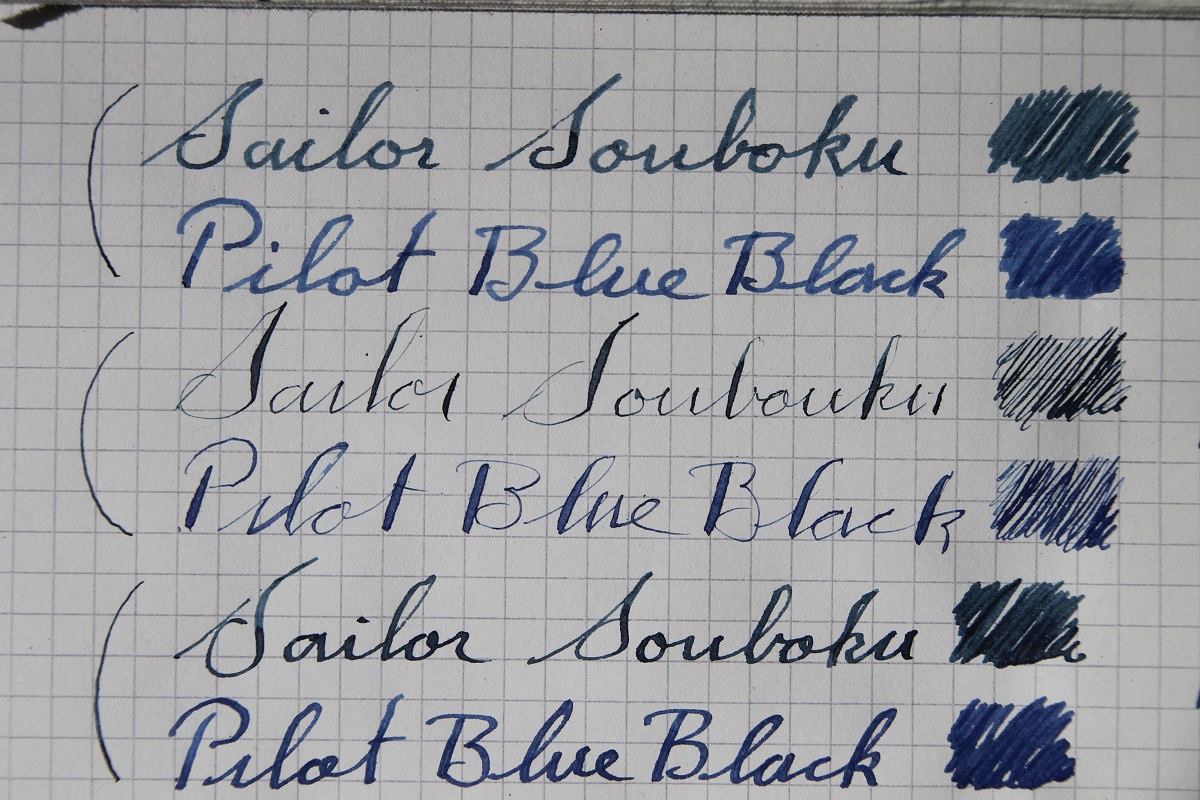 Sailor Souboku
Pilot Blue Black
Sailor Soubouku
Pilot Blue Black
Sailor Souboku
Pilot Blue Black